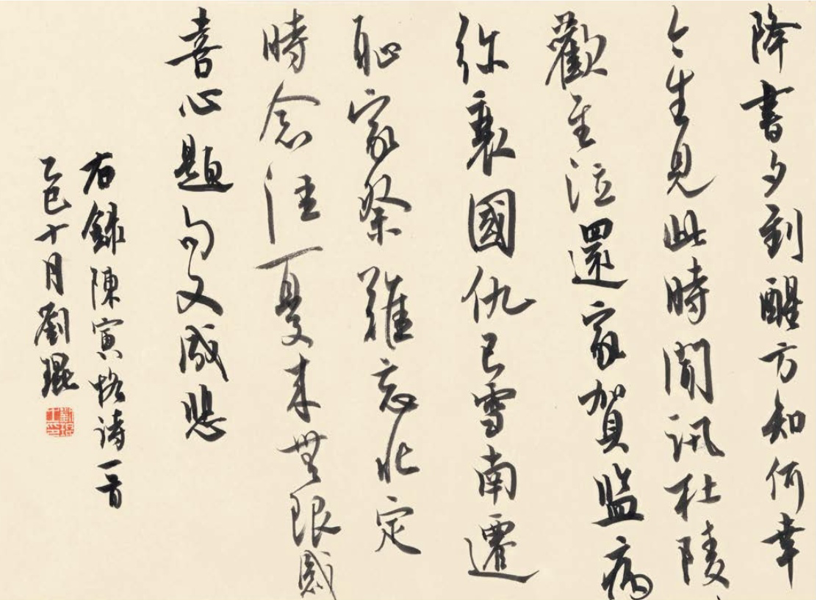 降書夕到醒方知何幸
今生見此時聞訊杜陵
歡至泣還家賀監病
弥衰國仇已雪南遷
恥家祭難忘北定
時念往憂来無限感
喜心題句又成悲
右録陳寅恪詩一首
乙巳十月劉琨